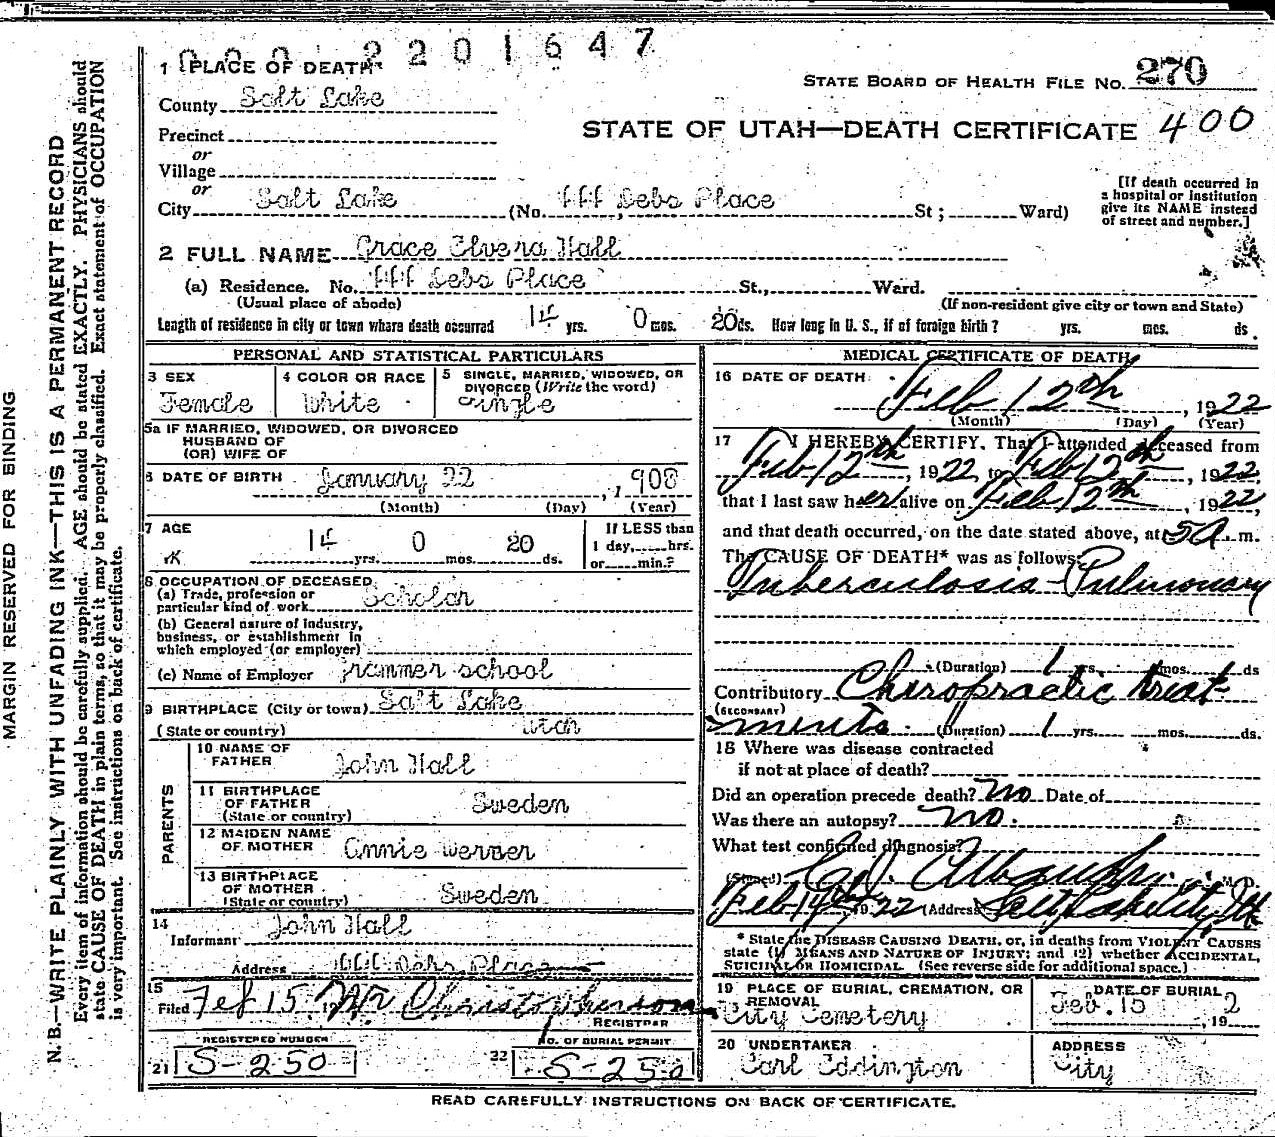 000 2201647
1 PLACE OF DEATH
STATE BOARD OF HEALTH FILE NO. 270
County Salt Lake
STATE OF UTAH—DEATH CERTIFICATE 400
Precinct
or
Village
or
City Salt Lake (No. 444 Debs Place St; Ward)
[If death occurred in
a hospital or institution
give its NAME instead
of street and number.]
2 FULL NAME Grace Elvera Hall
(a) Residence. No. 444 Debs Place St., Ward.
(Usual place of abode) (If non-resident give city or town and State)
Length of residence in city or town where death occurred 14 yrs. 0 mos. 20 ds. How long in U. S., if of foreign birth? yrs. mos. ds
PERSONAL AND STATISTICAL PARTICULARS
3 SEX
Female
4 COLOR OR RACE
White
5 SINGLE, MARRIED, WIDOWED, OR
DIVORCED (Write the word)
Single
5a IF MARRIED, WIDOWED, OR DIVORCED
HUSBAND OF
(OR) WIFE OF
6 DATE OF BIRTH January 22, 1908
(Month) (Day) (Year)
7 AGE
14 yrs. 0 mos. 20 ds.
If LESS than
1 day, hrs.
or min.?
8 OCCUPATION OF DECEASED
(a) Trade, profession or
particular kind of work Scholar
(b) General nature of industry,
business, or establishment in
which employed (or employer)
(c) Name of Employer grammer school
9 BIRTHPLACE (City or town) Salt Lake
(State or country) Utah
PARENTS
10 NAME OF
FATHER John Hall
11 BIRTHPLACE
OF FATHER
(State or country) Sweden
12 MAIDEN NAME
OF MOTHER Annie Werner
13 BIRTHPLACE
OF MOTHER
(State or country) Sweden
14
Informant John Hall
Address 444 Debs Place
15
Filed Feb 15 Christopherson
REGISTRAR
REGISTERED NUMBER
21 S-250
NO. OF BURIAL PERMIT
22 S-250
MEDICAL CERTIFICATE OF DEATH
16 DATE OF DEATH
Feb 12th, 1922
(Month) (Day) (Year)
17 I HEREBY CERTIFY, That I attended deceased from
Feb 12th, 1922 to Feb 12th, 1922
that I last saw her alive on Feb 12th, 1922,
and that death occurred, on the date stated above, at 5 A. m.
The CAUSE OF DEATH* was as follows:
Tuberculosis-Pulmonary
(Duration) 1 yrs. mos. ds
Contributory Chiropractic treat-
(SECONDARY)
ments. (Duration) 1 yrs. mos. ds.
18 Where was disease contracted
if not at place of death?
Did an operation precede death? no Date of
Was there an autopsy? no.
What test confirmed diagnosis?
(Signed) M. D.
Feb 14th, 1922 (Address) Salt Lake City, Ut
* State the DISEASE CAUSING DEATH, or, in deaths from VIOLENT CAUSES
state (1) MEANS AND NATURE OF INJURY; and (2) whether ACCIDENTAL,
SUICIDAL OR HOMICIDAL. (See reverse side for additional space.)
19 PLACE OF BURIAL, CREMATION, OR
REMOVAL
City Cemetery
DATE OF BURIAL
Feb. 15, 192
20 UNDERTAKER
Carl Eddington
ADDRESS
City
READ CAREFULLY INSTRUCTIONS ON BACK OF CERTIFICATE.
MARGIN RESERVED FOR BINDING
N. B.—WRITE PLAINLY WITH UNFADING INK—THIS IS A PERMANENT RECORD
Every item of information should be carefully supplied. AGE should be stated EXACTLY. PHYSICIANS should
state CAUSE OF DEATH in plain terms, so that it may be properly classified. Exact statement of OCCUPATION
is very important. See instructions on back of certificate.